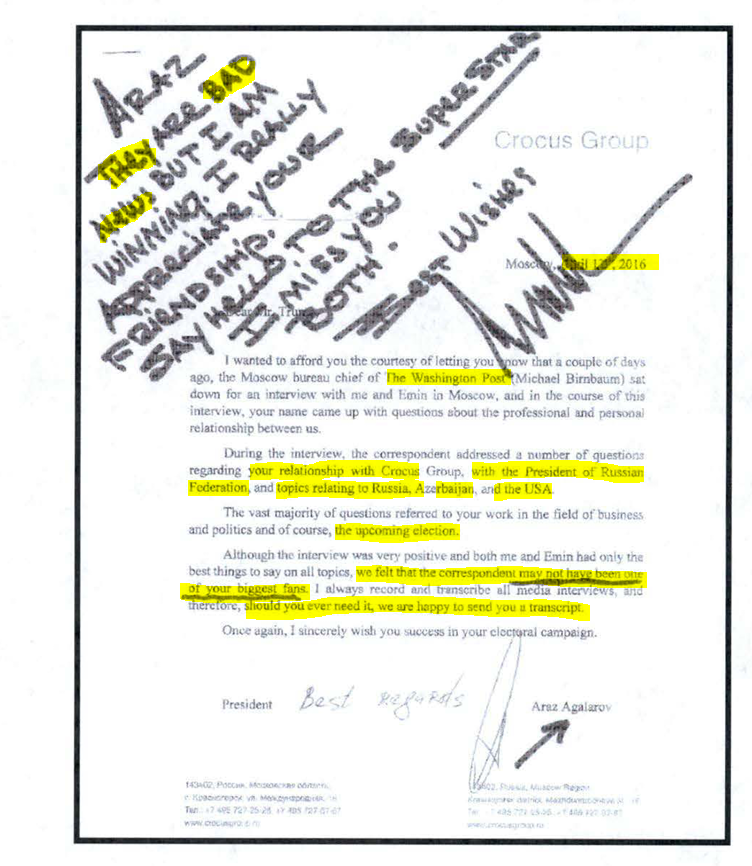 ARAZ
THEY ARE BAD
NEWS BUT I AM
WINNING. I REALLY
APPRECIATE YOUR
FRIENDSHIP.
SAY HELLO TO THE SUPERSTAR
I MISS YOU
BOTH.
Best Wishes
Crocus Group
Moscow, 2016
Dear Mr. Trump
I wanted to afford you the courtesy of letting you know that a couple of days
ago, the Moscow bureau chief of The Washington Post (Michael Birnbaum) sat
down for an interview with me and Emin in Moscow, and in the course of this
interview, your name came up with questions about the professional and personal
relationship between us.
During the interview, the correspondent addressed a number of questions
regarding your relationship with Crocus Group, with the President of Russian
Federation, and topics relating to Russia, Azerbaijan, and the USA.
The vast majority of questions referred to your work in the field of business
and politics and of course, the upcoming election.
Although the interview was very positive and both me and Emin had only the
best things to say on all topics, we felt that the correspondent may not have been one
of your biggest fans. I always record and transcribe all media interviews, and
therefore, should you ever need it, we are happy to send you a transcript.
Once again, I sincerely wish you success in your electoral campaign.
President Best regards Araz Agalarov
143402, Россия, Московская область,
г. Красногорск, ул. Международная,
Тел.: +7 495
www.crocusgroup.ru
Russia, Moscow Region
Krasnogorsk district,
Tel.: +7 495
www.crocusgroup.ru